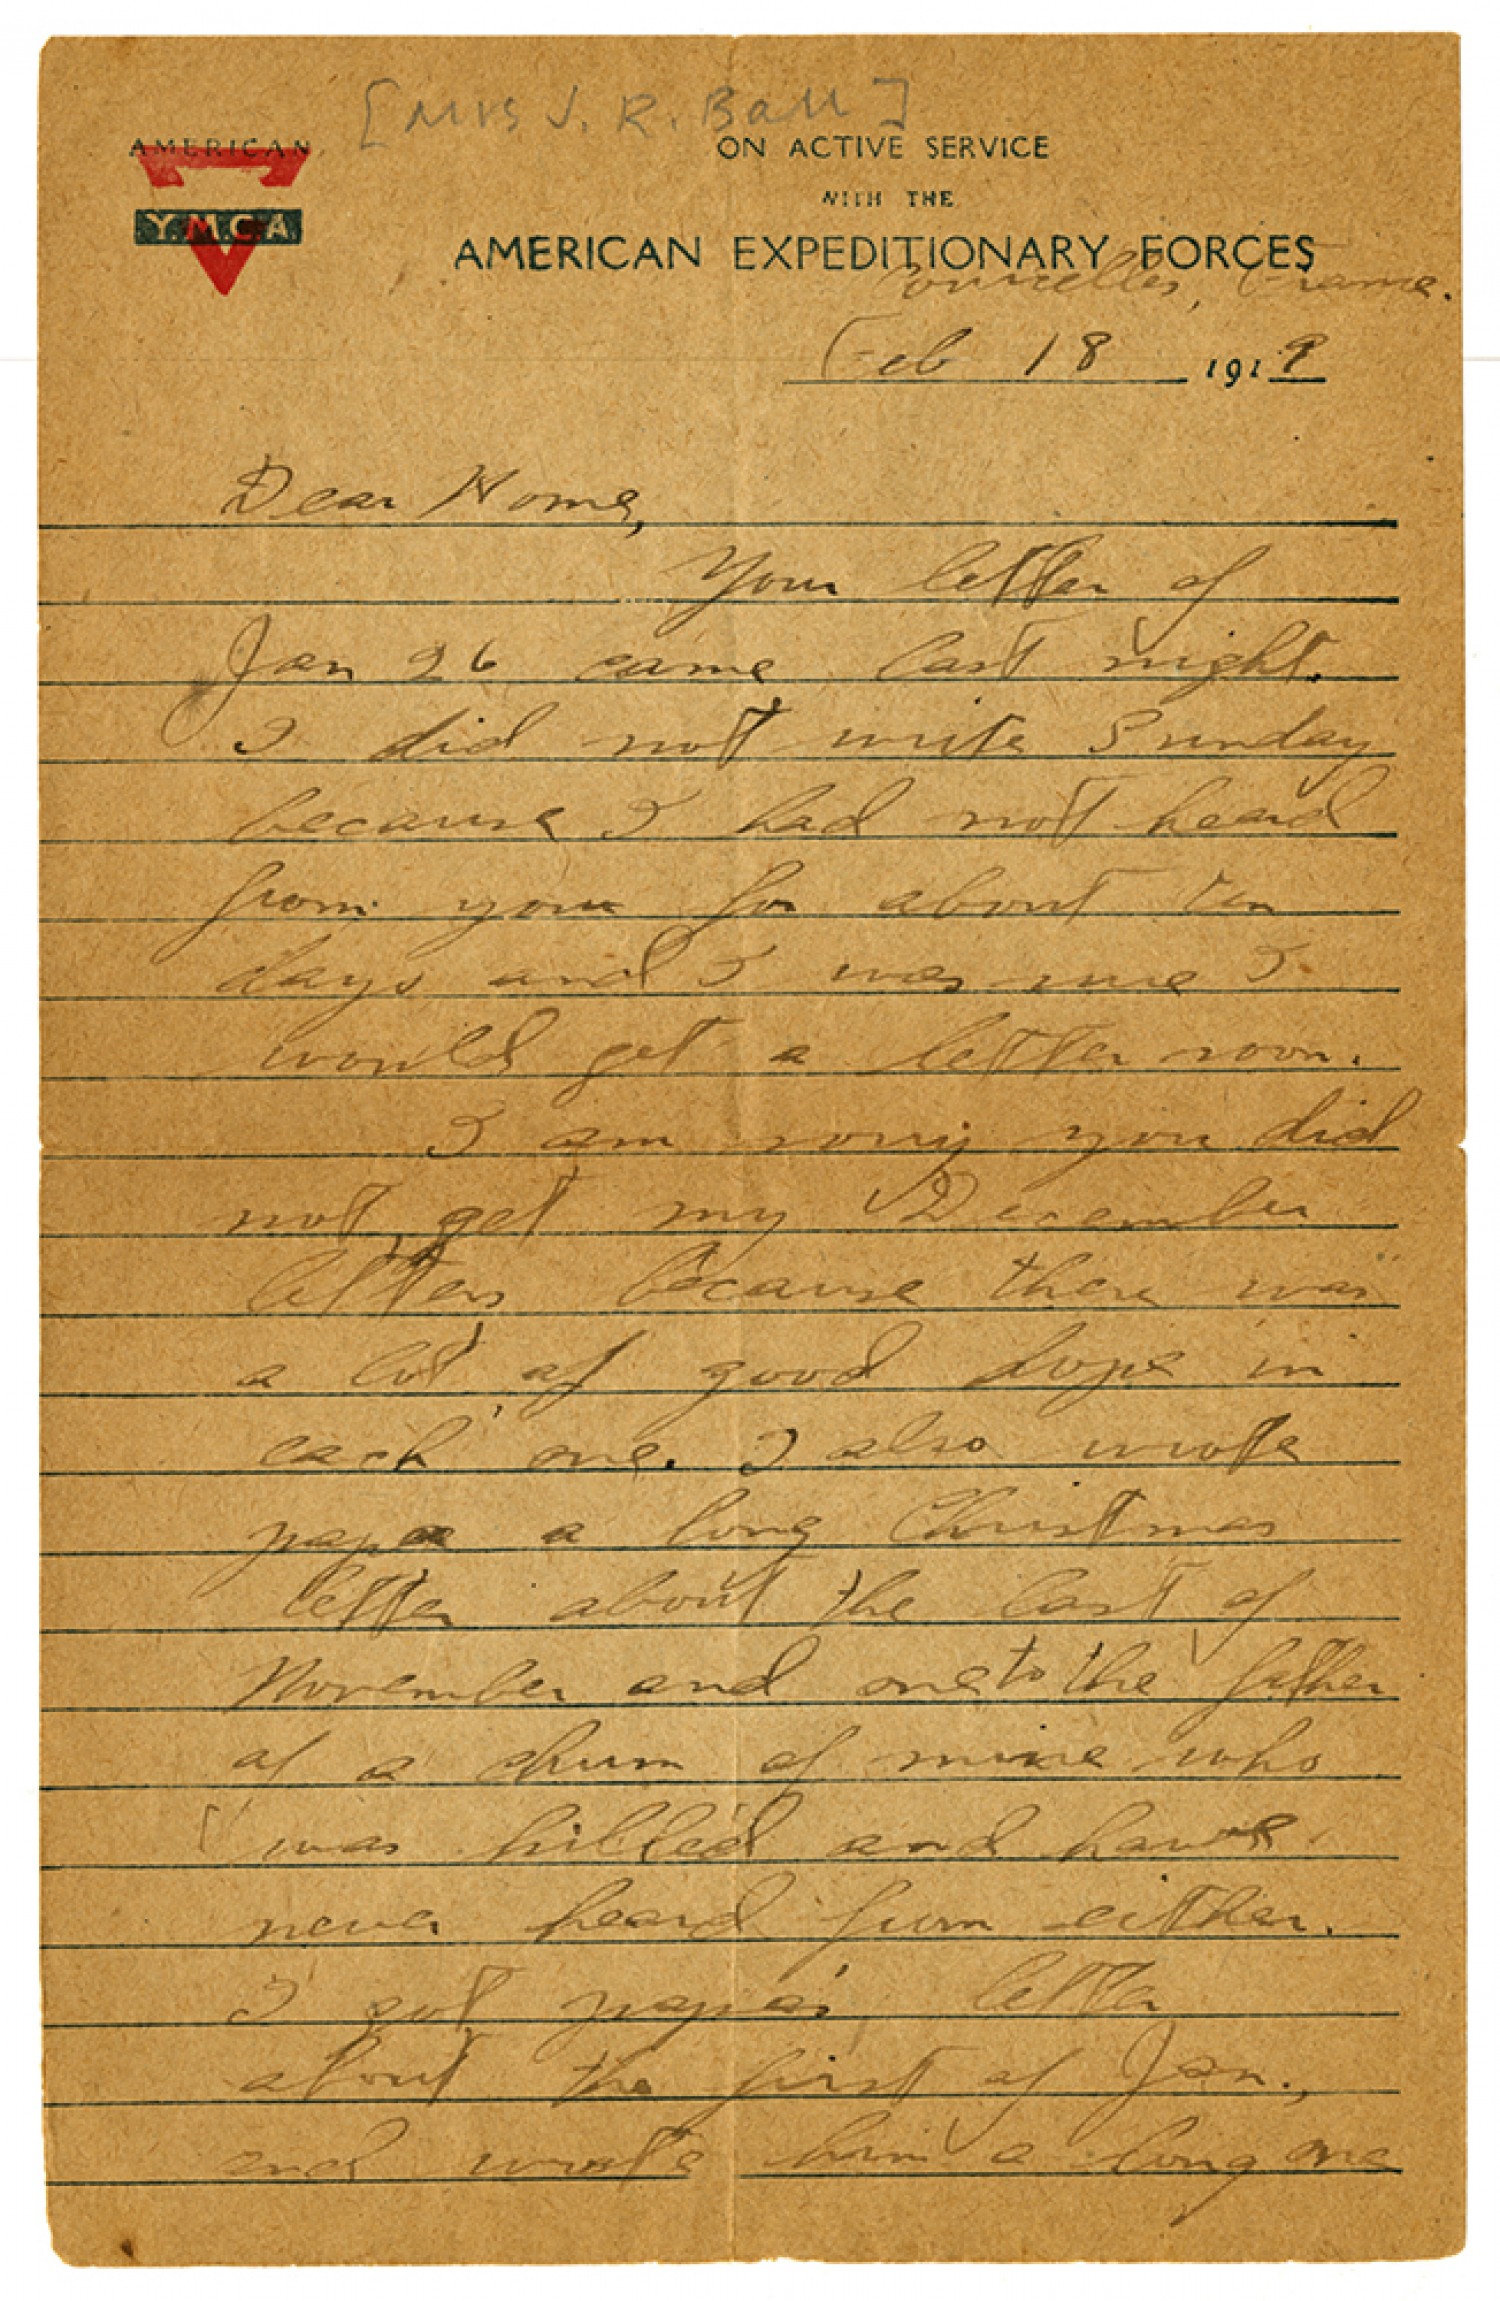 [Mrs J. R. Ball]
AMERICAN
Y.M.C.A.
ON ACTIVE SERVICE
WITH THE
AMERICAN EXPEDITIONARY FORCES
France.
Feb 18 1919
Dear Home,
Your letter of
Jan 26 came last night.
I did not write Sunday
because I had not heard
from you for about ten
days and I was sure I
would get a letter soon.
I am sorry you did
not get my December
letters because there was
a lot of good dope in
each one. I also wrote
papa a long Christmas
letter about the last of
November and one to the father
of a chum of mine who
was killed and have
never heard from either.
I got papa's letter
about the first of Jan.,
and wrote him a long one